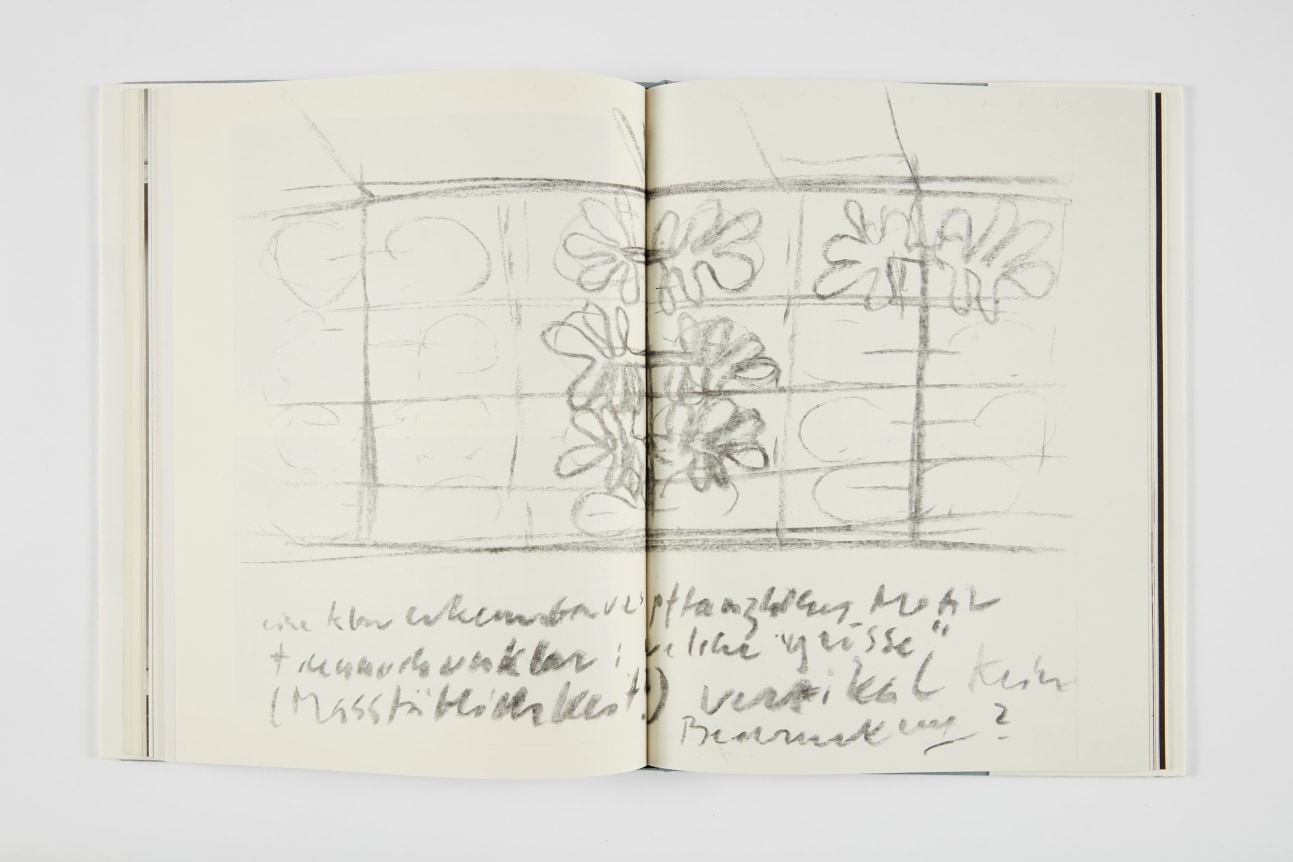 eine klar erkennbar pflanzliches Motiv
+ dennoch unklar : welche "grösse"
(Massstäblichkeit!) vertikal keine
Bedruckung ?